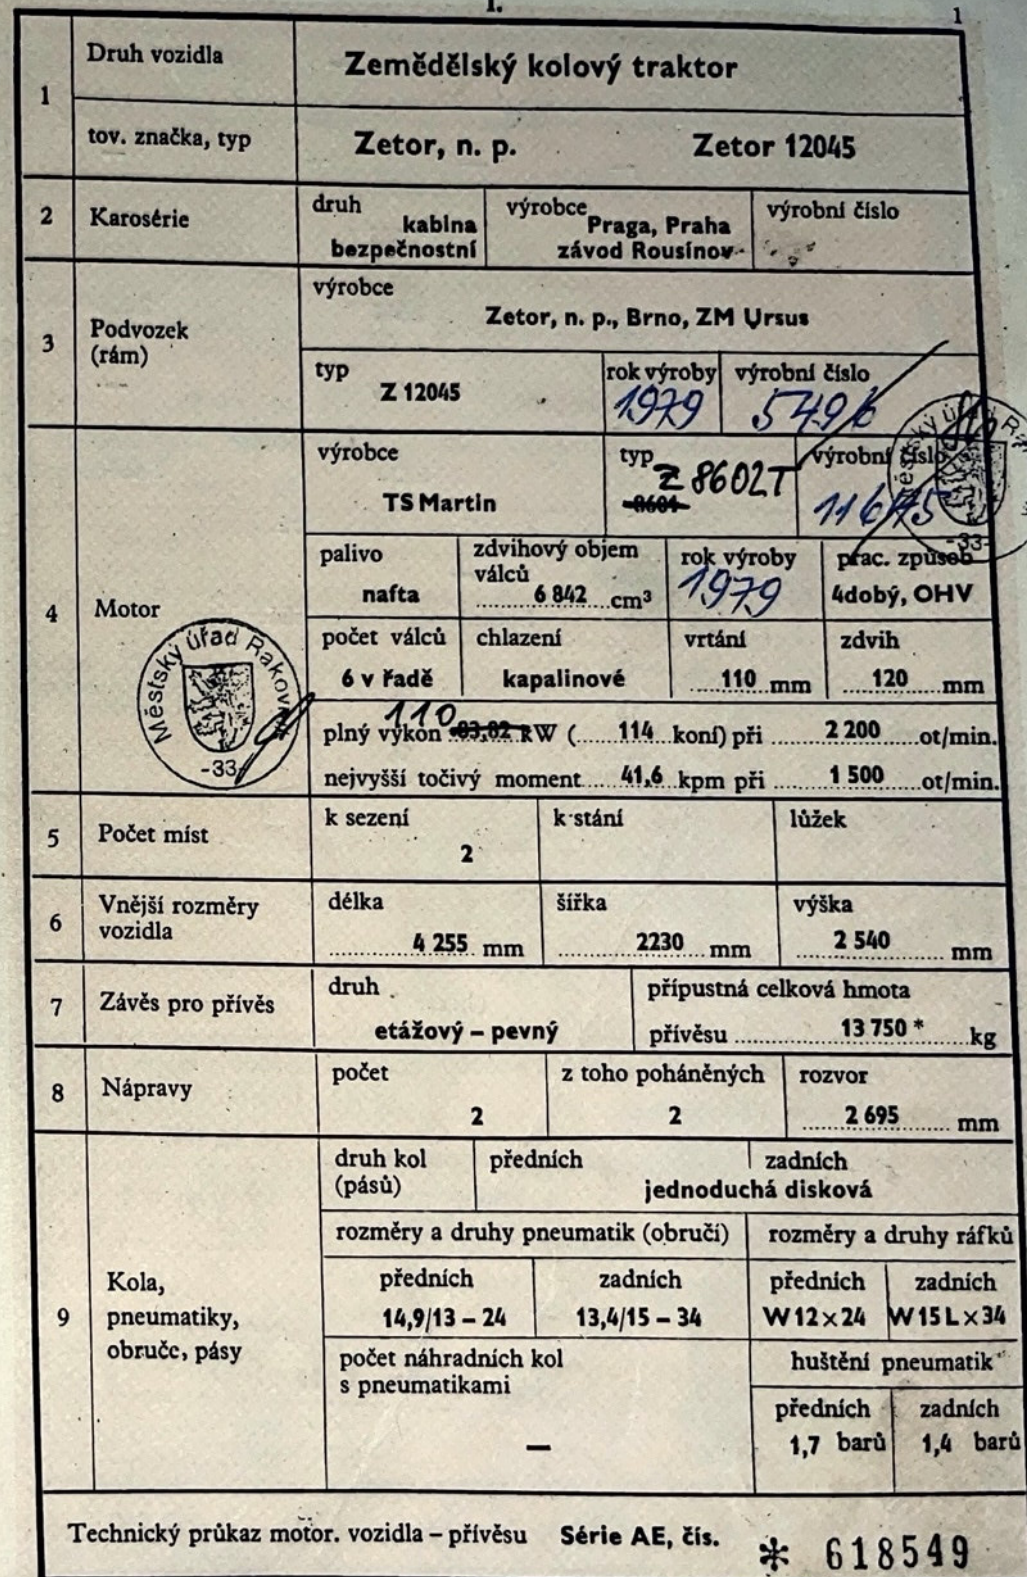 I.
1
1
Druh vozidla
Zemědělský kolový traktor
tov. značka, typ
Zetor, n. p. Zetor 12045
2
Karosérie
druh
kabina
bezpečnostní
výrobce
Praga, Praha
závod Rousínov
výrobní číslo
3
Podvozek
(rám)
výrobce
Zetor, n. p., Brno, ZM Ursus
typ
Z 12045
rok výroby
1979
výrobní číslo
5496
4
Motor
výrobce
TS Martin
typ
Z 8602T
8601
výrobní číslo
11675
Městský úřad Ra
-33-
palivo
nafta
zdvihový objem
válců
6 842 cm³
rok výroby
1979
prac. způsob
4dobý, OHV
počet válců
6 v řadě
chlazení
kapalinové
vrtání
110 mm
zdvih
120 mm
Městský úřad Rakovník
-33-
110
plný výkon 83,82 kW (114 koní) při 2 200 ot/min.
nejvyšší točivý moment 41,6 kpm při 1 500 ot/min.
5
Počet míst
k sezení
2
k stání
lůžek
6
Vnější rozměry
vozidla
délka
4 255 mm
šířka
2230 mm
výška
2 540 mm
7
Závěs pro přívěs
druh
etážový – pevný
přípustná celková hmota
přívěsu 13 750 * kg
8
Nápravy
počet
2
z toho poháněných
2
rozvor
2 695 mm
9
Kola,
pneumatiky,
obruče, pásy
druh kol
(pásů)
předních
zadních
jednoduchá disková
rozměry a druhy pneumatik (obručí)
rozměry a druhy ráfků
předních
14,9/13 – 24
zadních
13,4/15 – 34
předních
W 12×24
zadních
W 15 L×34
počet náhradních kol
s pneumatikami
—
huštění pneumatik
předních
1,7 barů
zadních
1,4 barů
Technický průkaz motor. vozidla – přívěsu Série AE, čís. * 618549